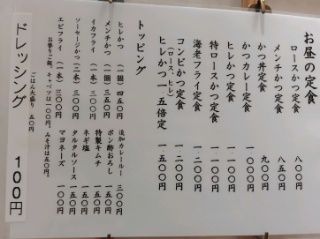 お昼の定食
ロースかつ定食 八〇〇
メンチかつ定食 八五〇
かつ丼定食 九〇〇
かつカレー定食
ヒレかつ定食 一〇〇〇
特ロースかつ定食 一二〇〇
海老フライ定食 一二〇〇
コンビかつ定食 一二〇〇
(ロース、ヒレ)
ヒレかつ一、五倍定食 一五〇〇
トッピング
ヒレかつ (一個) 四五〇円
メンチかつ (一個) 三五〇円
イカフライ (一本) 三〇〇円
ソーセージかつ (二本) 三〇〇円
エビフライ (一本) 三〇〇円
追加カレールー 三〇〇円
ポン酢おろし 一五〇円
特製キムチ 一〇〇円
ネギ塩 一〇〇円
タルタルソース 一五〇円
マヨネーズ 一〇〇円
お替りご飯、キャベツは一〇〇円、みそ汁は五〇円。
ごはん大盛り 五〇円
ドレッシング 100円